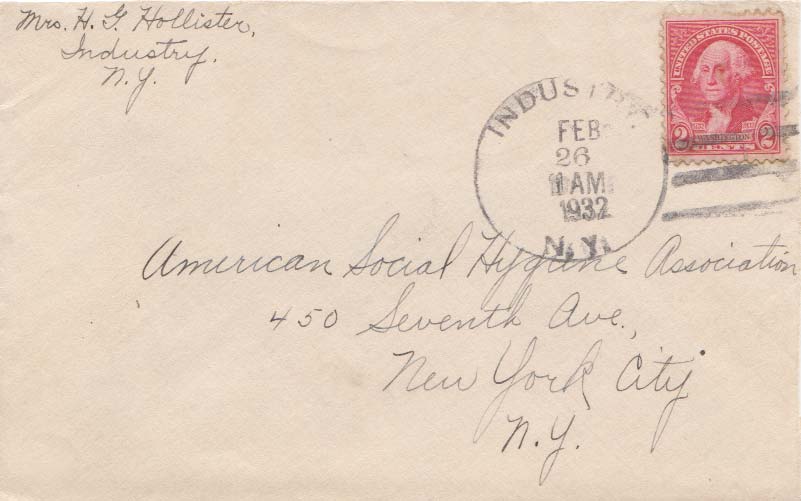 Mrs. H. G. Hollister,
Industry.
N.Y.
UNITED STATES POSTAGE
2 WASHINGTON 2
CENTS
INDUSTRY.
FEB
26
11 AM
1932
N.Y.
American Social Hygiene Association
450 Seventh Ave.,
New York City
N.Y.